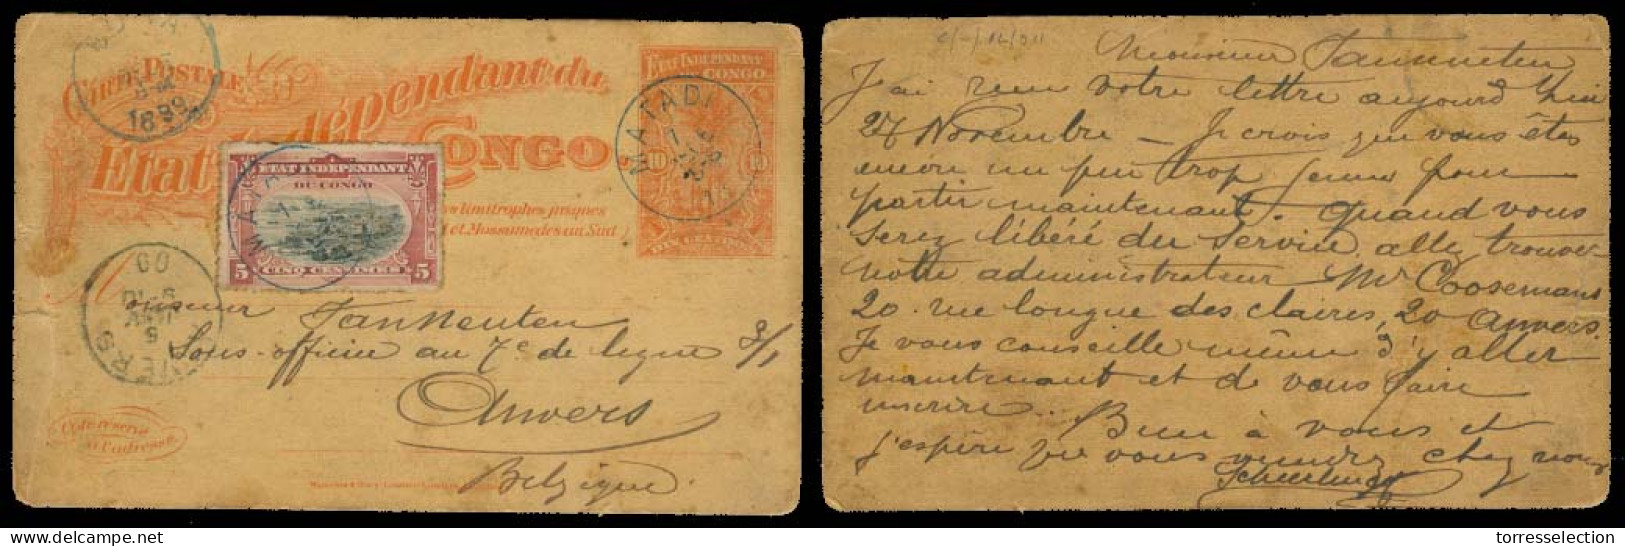 CARTE POSTALE
Etat Indépendant du
CONGO
ETAT INDÉPENDANT
DU CONGO
10 10
DIX CENTIMES
MATADI
1899
ETAT INDÉPENDANT
DU CONGO
5 5
CINQ CENTIMES
MATADI
limitrophes jusques
et Mossamedes au Sud)
ANVERS
Monsieur Tanneuten
Sous-officier au 7e de ligne 3/1
Anvers
Belgique
Côté réservé
à l'adresse
Monsieur Tanneuten
J'ai reçu votre lettre aujourd'hui
27 Novembre — Je crois que vous êtes
encore un peu trop jeune pour
partir maintenant. Quand vous
serez libéré du service allez trouver
notre administrateur Mr Coosemans
20 rue longue des claires, 20 Anvers.
Je vous conseille même d'y aller
maintenant et de vous faire
inscrire.
Bien à vous et
j'espère que vous viendrez chez nous
torresselection.com